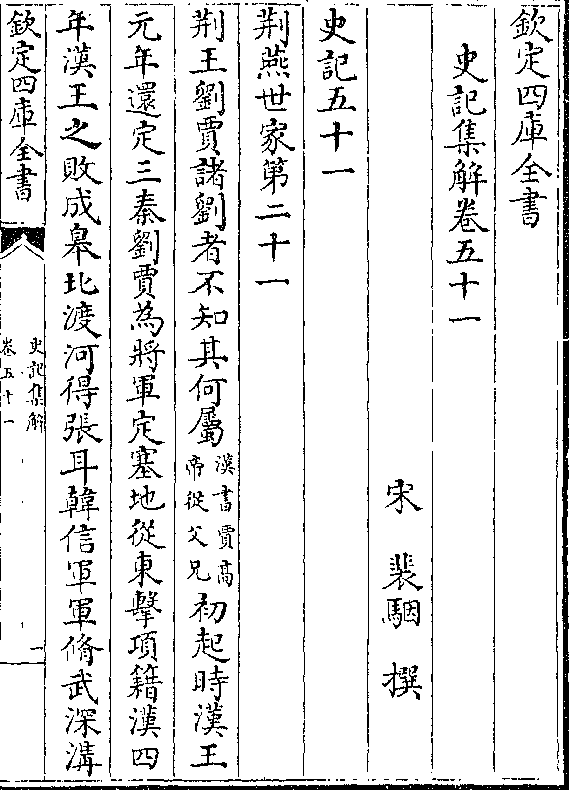 欽定四庫全書
史記集解卷五十一
宋 裴駰 撰
史記五十一
荆燕世家第二十一
荆王劉賈諸劉者不知其何屬漢書賈高帝從父兄初起時漢王
元年還定三秦劉賈為將軍定塞地從東擊項籍漢四
年漢王之敗成皋北渡河得張耳韓信軍軍脩武深溝
欽定四庫全書
史記集解
卷五十一
一